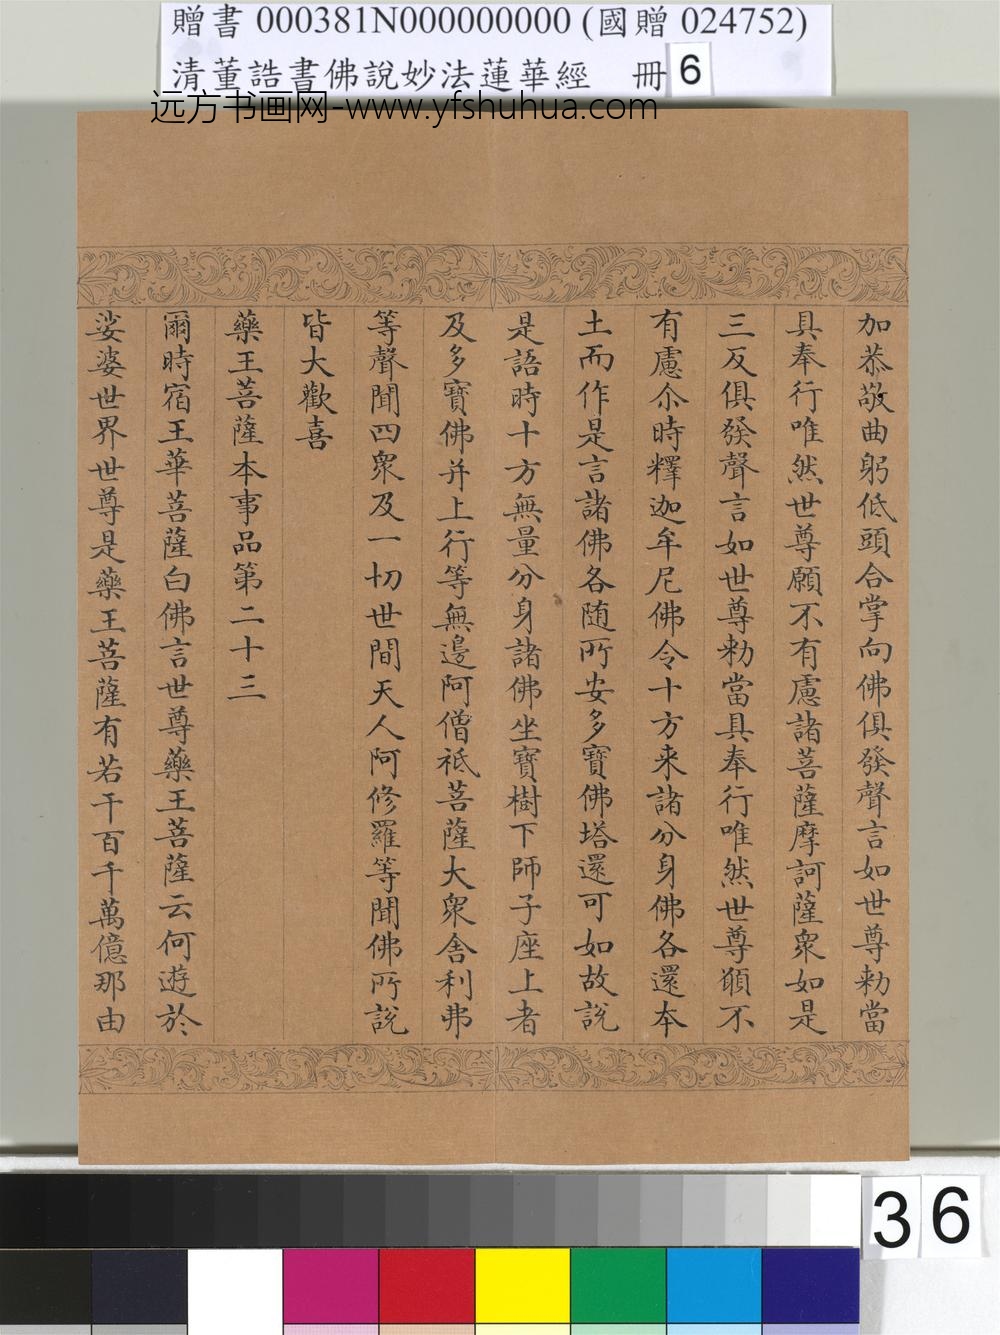 贈書 000381N000000000 (國贈 024752)
清董誥書佛說妙法蓮華經 冊 6
远方书画网-www.yfshuhua.com
加恭敬曲躬低頭合掌向佛俱發聲言如世尊勑當
具奉行唯然世尊願不有慮諸菩薩摩訶薩衆如是
三反俱發聲言如世尊勑當具奉行唯然世尊願不
有慮尒時釋迦牟尼佛令十方来諸分身佛各還本
土而作是言諸佛各随所安多寶佛塔還可如故說
是語時十方無量分身諸佛坐寶樹下師子座上者
及多寶佛并上行等無邊阿僧祇菩薩大衆舍利弗
等聲聞四衆及一切世間天人阿修羅等聞佛所說
皆大歡喜
藥王菩薩本事品第二十三
爾時宿王華菩薩白佛言世尊藥王菩薩云何遊於
娑婆世界世尊是藥王菩薩有若干百千萬億那由
36